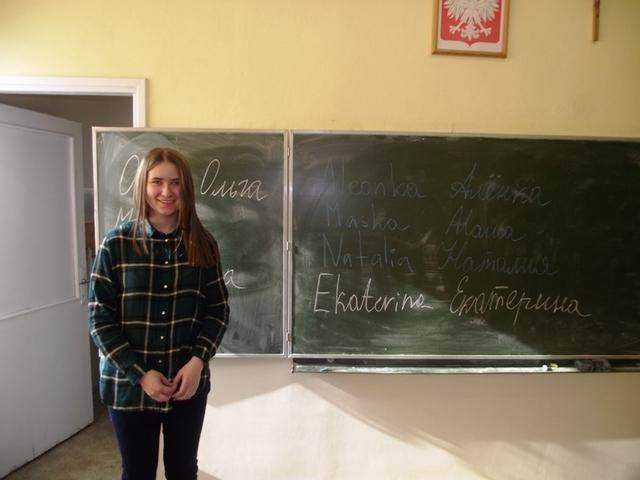 Ольга
Aleonka Алёнка
Masha Маша
Natalia Наталия
Ekaterina Екатерина